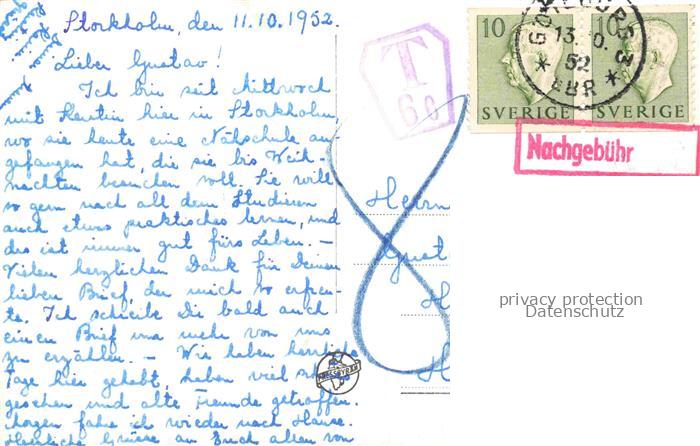 Stockholm, den 11.10.1952.
Lieber Gustav!
Ich bin seit Mittwoch
mit Kerstin hier in Stockholm,
wo sie heute eine Nähschule an
gefangen hat, die sie bis Weih-
nachten besuchen soll. Sie will
so gern nach all dem Studieren
auch etwas praktisches lernen, und
das ist immer gut fürs Leben. —
Vielen herzlichen Dank für Deinen
lieben Brief, der mich so erfreu-
te. Ich schreibe Dir bald auch
einen Brief um mehr von uns
zu erzählen. — Wir haben herrliche
Tage hier gehabt, haben viel
gesehen und alte Freunde getroffen.
Morgen fahre ich wieder nach Hause.
Herzliche Grüsse an Euch allen von
T
60
10
10
SVERIGE
SVERIGE
13
52
Nachgebühr
Herrn
Gust
H
H
PRESSBYRÅN
privacy protection
Datenschutz